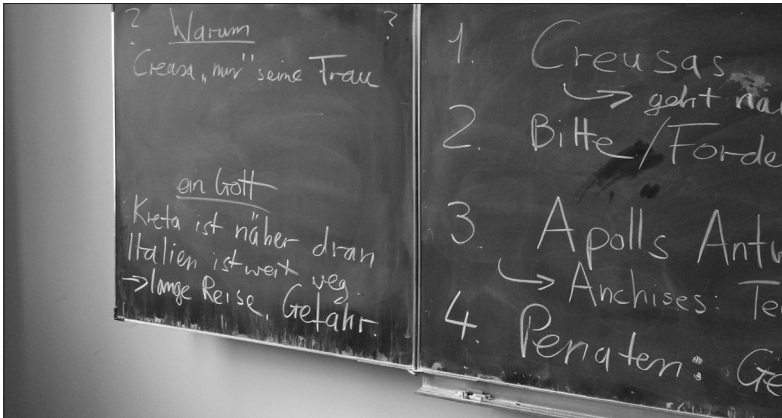 ? Warum ?
Creusa „nur" seine Frau
ein Gott
Kreta ist näher dran
Italien ist weit weg.
→ lange Reise, Gefahr.
1. Creusas
→ geht na
2. Bitte / Forde
3. Apolls Antw
→ Anchises: Te
4. Penaten: Ge